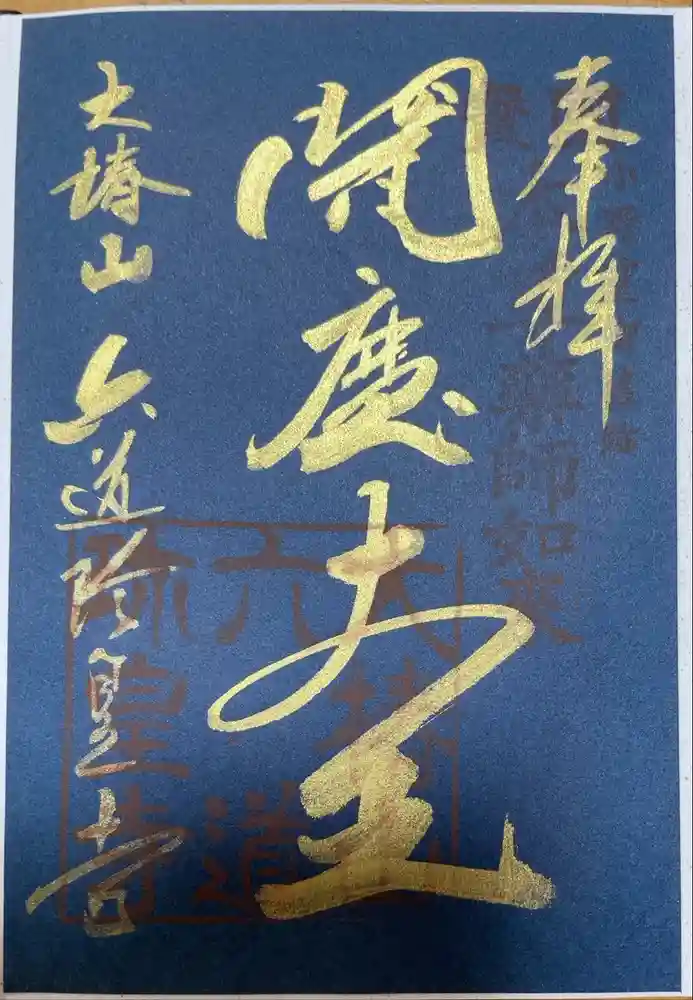 奉拝
閻魔大王
大椿山 六道珍皇寺
薬師如来
大椿山
六道
珍皇寺